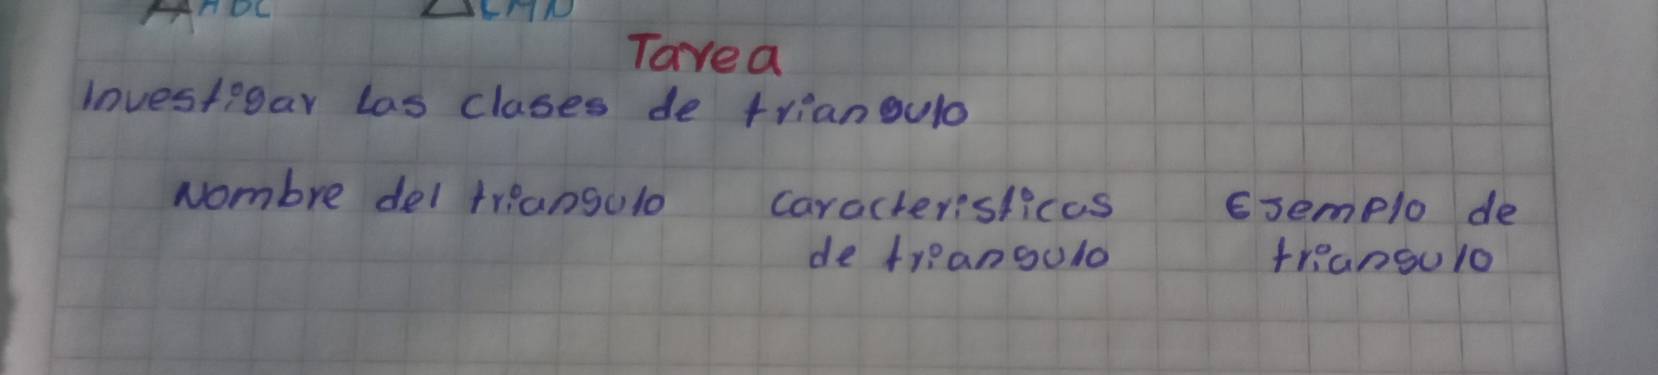 △ABC △LMN
Tarea
Investigar Las clases de triangulo
Nombre del triangulo caracteristicas Ejemplo de
de triangulo triangulo